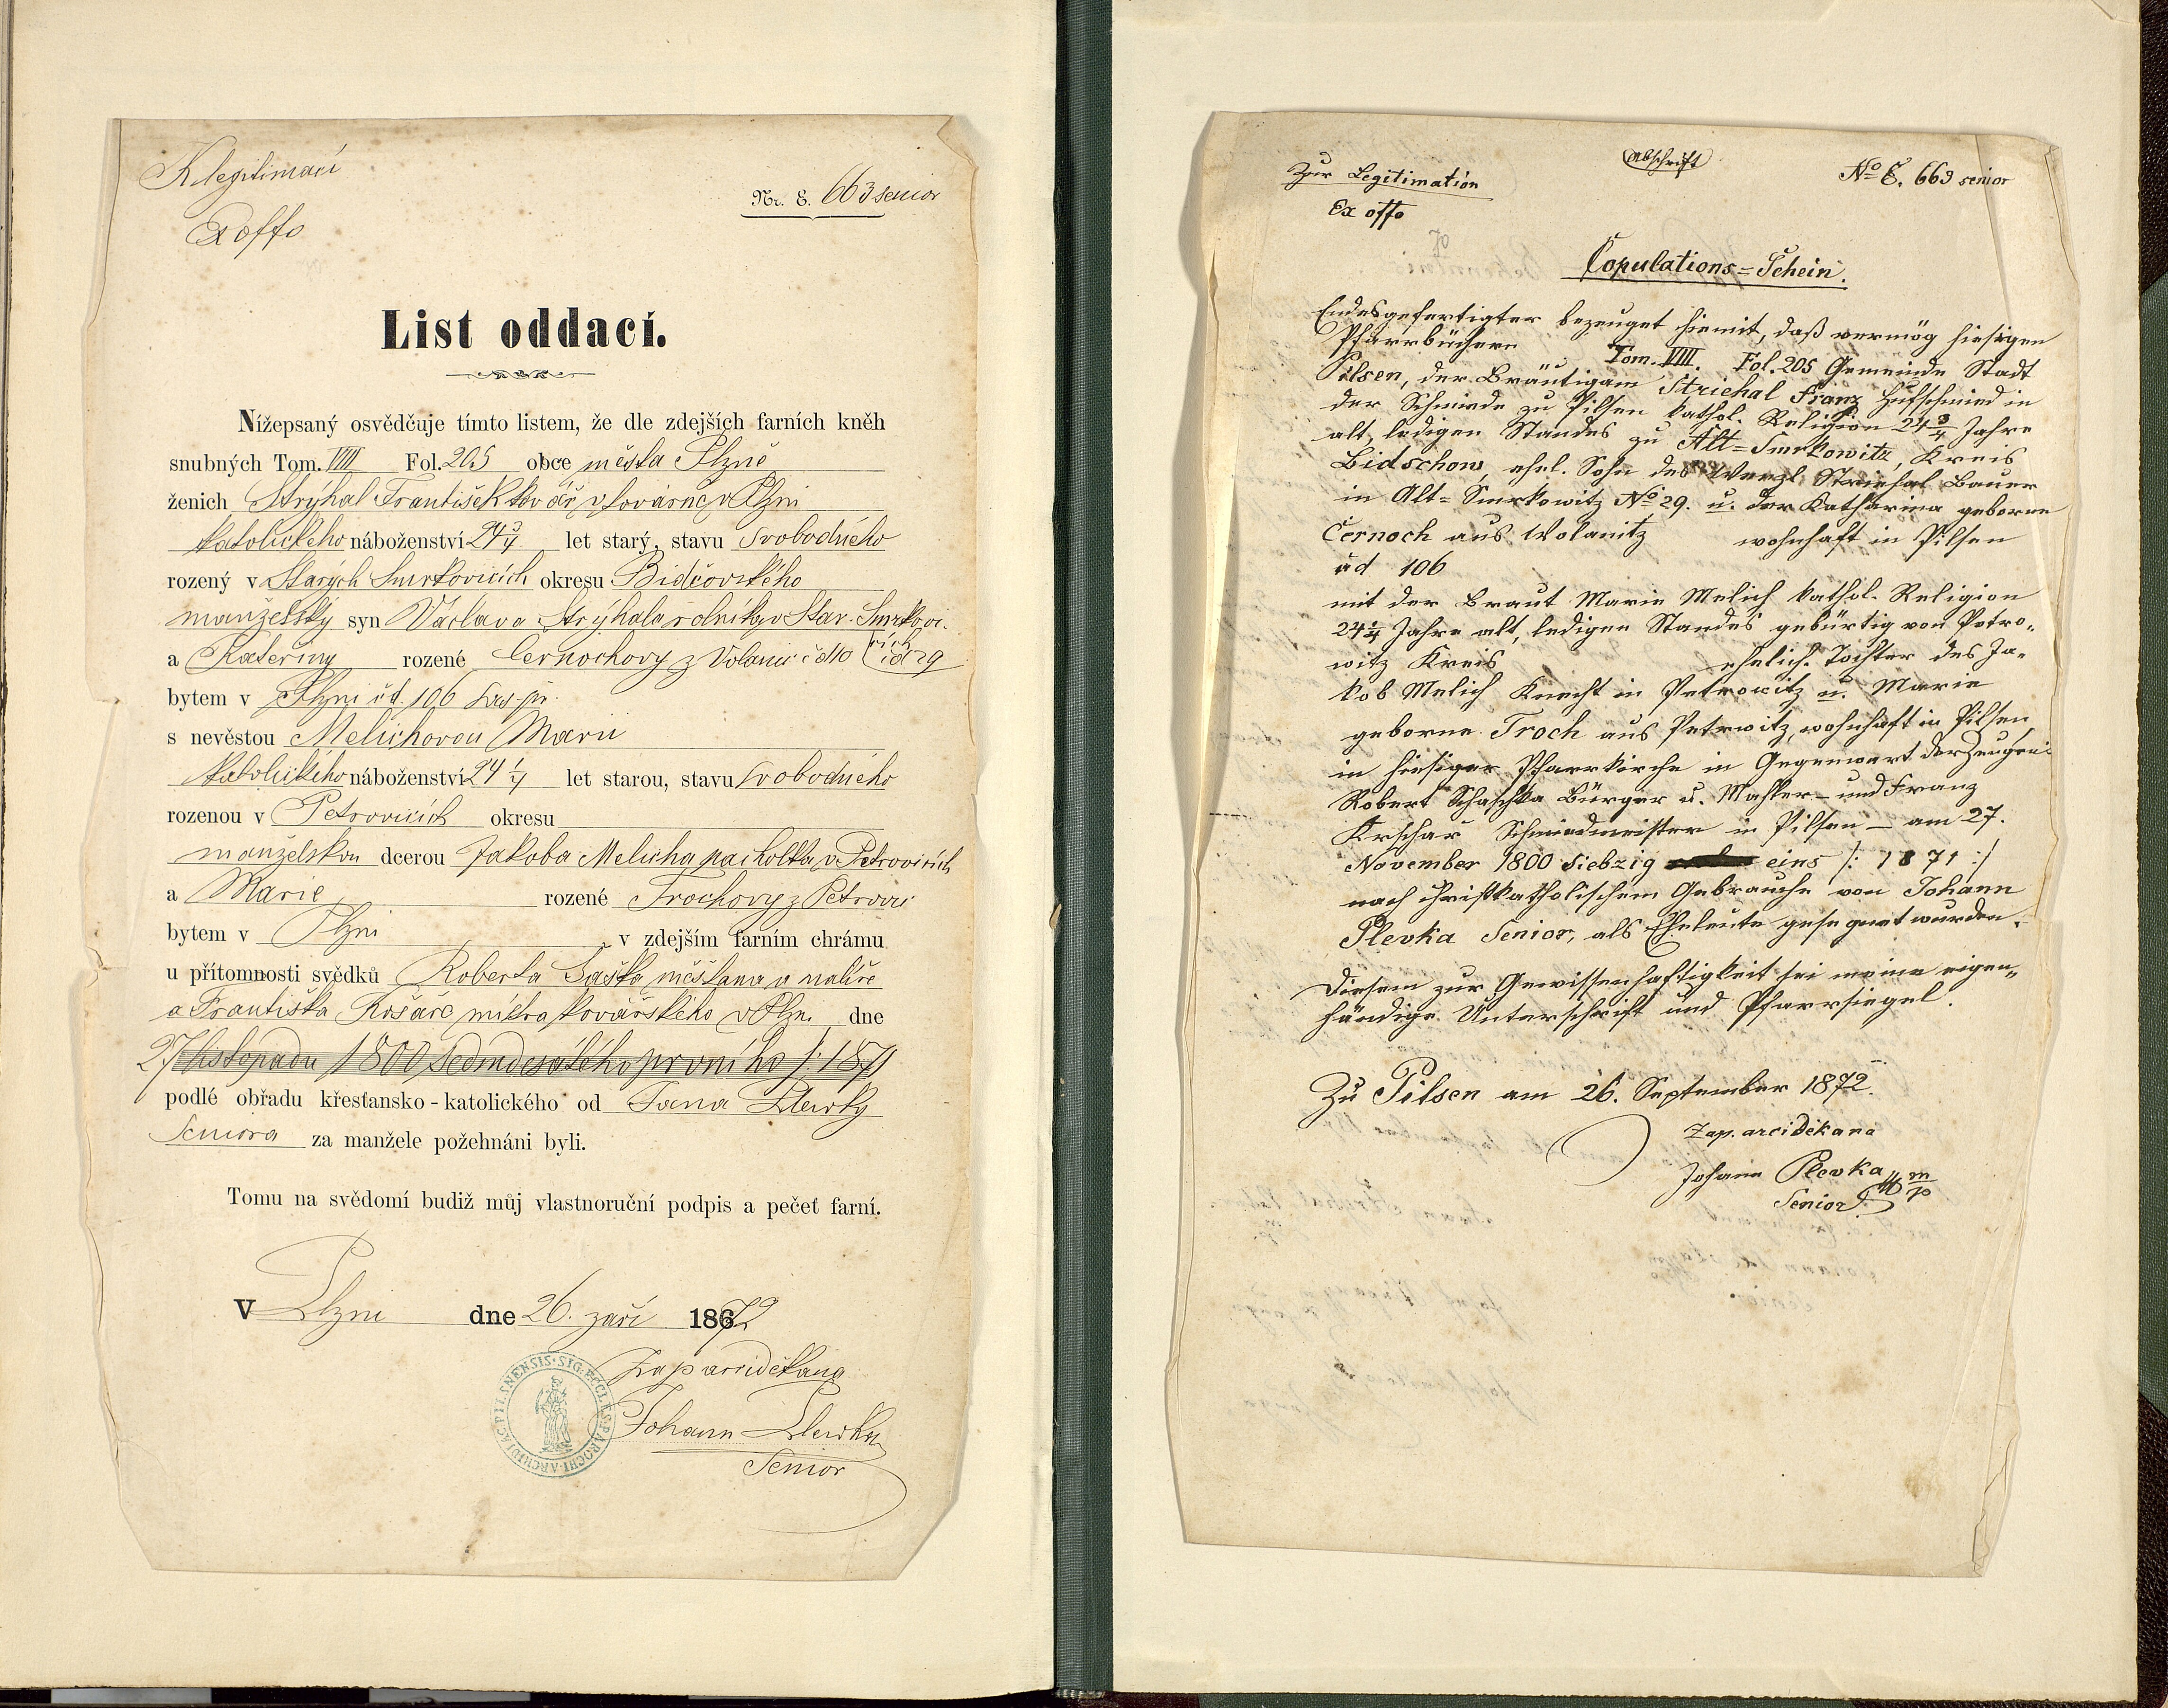 K legitimaci
Ex offo
Nr. E. 663 senior
List oddací.
Nížepsaný osvědčuje tímto listem, že dle zdejších farních kněh
snubných Tom. VIII Fol. 205 obce města Plzně
ženich Strýhal František kovář v továrně v Plzni
katolického náboženství 24 3/4 let starý, stavu svobodného
rozený v Starých Smrkovicích okresu Bidčovského
manželský syn Václava Strýhala rolníka v Star. Smrkovi-
cích
a Kateřiny rozené Černochovy z Volanic čd 10 čd 29
bytem v Plzni čd. 106
s nevěstou Melichovou Marii
katolického náboženství 24 1/4 let starou, stavu svobodného
rozenou v Petrovicích okresu
manželskou dcerou Jakoba Melicha pacholka v Petrovicích
a Marie rozené Trochovy z Petrovic
bytem v Plzni v zdejším farním chrámu
u přítomnosti svědků Roberta Šaška měšťana a malíře
a Františka Kršáře mistra kovářského v Plzni dne
27 listopadu 1800 sedmdesátého prvního /: 1871
podlé obřadu křesťansko-katolického od Jana Plewky
Seniora za manžele požehnáni byli.
Tomu na svědomí budiž můj vlastnoruční podpis a pečeť farní.
V Plzni dne 26. září 1872
Zap arciděkana
Johann Plewka
Senior
SIG. ECCLES. PAROCH. ARCHIDIAC. PILSNENSIS
Abschrift
Zur Legitimation
Ex offo
No E. 663 senior
Copulations=Schein.
Endesgefertigter bezeuget hiemit, daß vermög hiesigen
Pfarrbüchern Tom. VIII. Fol. 205 Gemeinde Stadt
Pilsen, der Bräutigam Striehal Franz Hufschmied in
der Schmiede zu Pilsen kathol. Religion 24 3/4 Jahre
alt, ledigen Standes zu Alt=Smrkowitz, Kreis
Bidschow, ehel. Sohn des Wenzl Striehal Bauer
in Alt=Smrkowitz No 29. u. der Katharina geborne
Černoch aus Wolanitz wohnhaft in Pilsen
čd 106
mit der Braut Marie Melich kathol. Religion
24 1/4 Jahre alt, ledigen Standes gebürtig von Petro-
witz Kreis ehelich. Tochter des Ja-
kob Melich Knecht in Petrowitz u. Marie
geborne Troch aus Petrwitz, wohnhaft in Pilsen
in hiesiger Pfarrkirche in Gegenwart der Zeugen:
Robert Schaschka Bürger u. Mahler – und Franz
Krschar Schmiedmeister in Pilsen – am 27.
November 1800 siebzig eins /: 1871 :/
nach christkatholischem Gebrauche von Johann
Plevka Senior, als Eheleute gesegnet wurden.
Diesem zur Gewissenhaftigkeit sei meine eigen-
händige Unterschrift und Pfarrsiegel.
Zu Pilsen am 26. September 1872.
Zap. arciděkana
Johann Plevka m/p
Senior